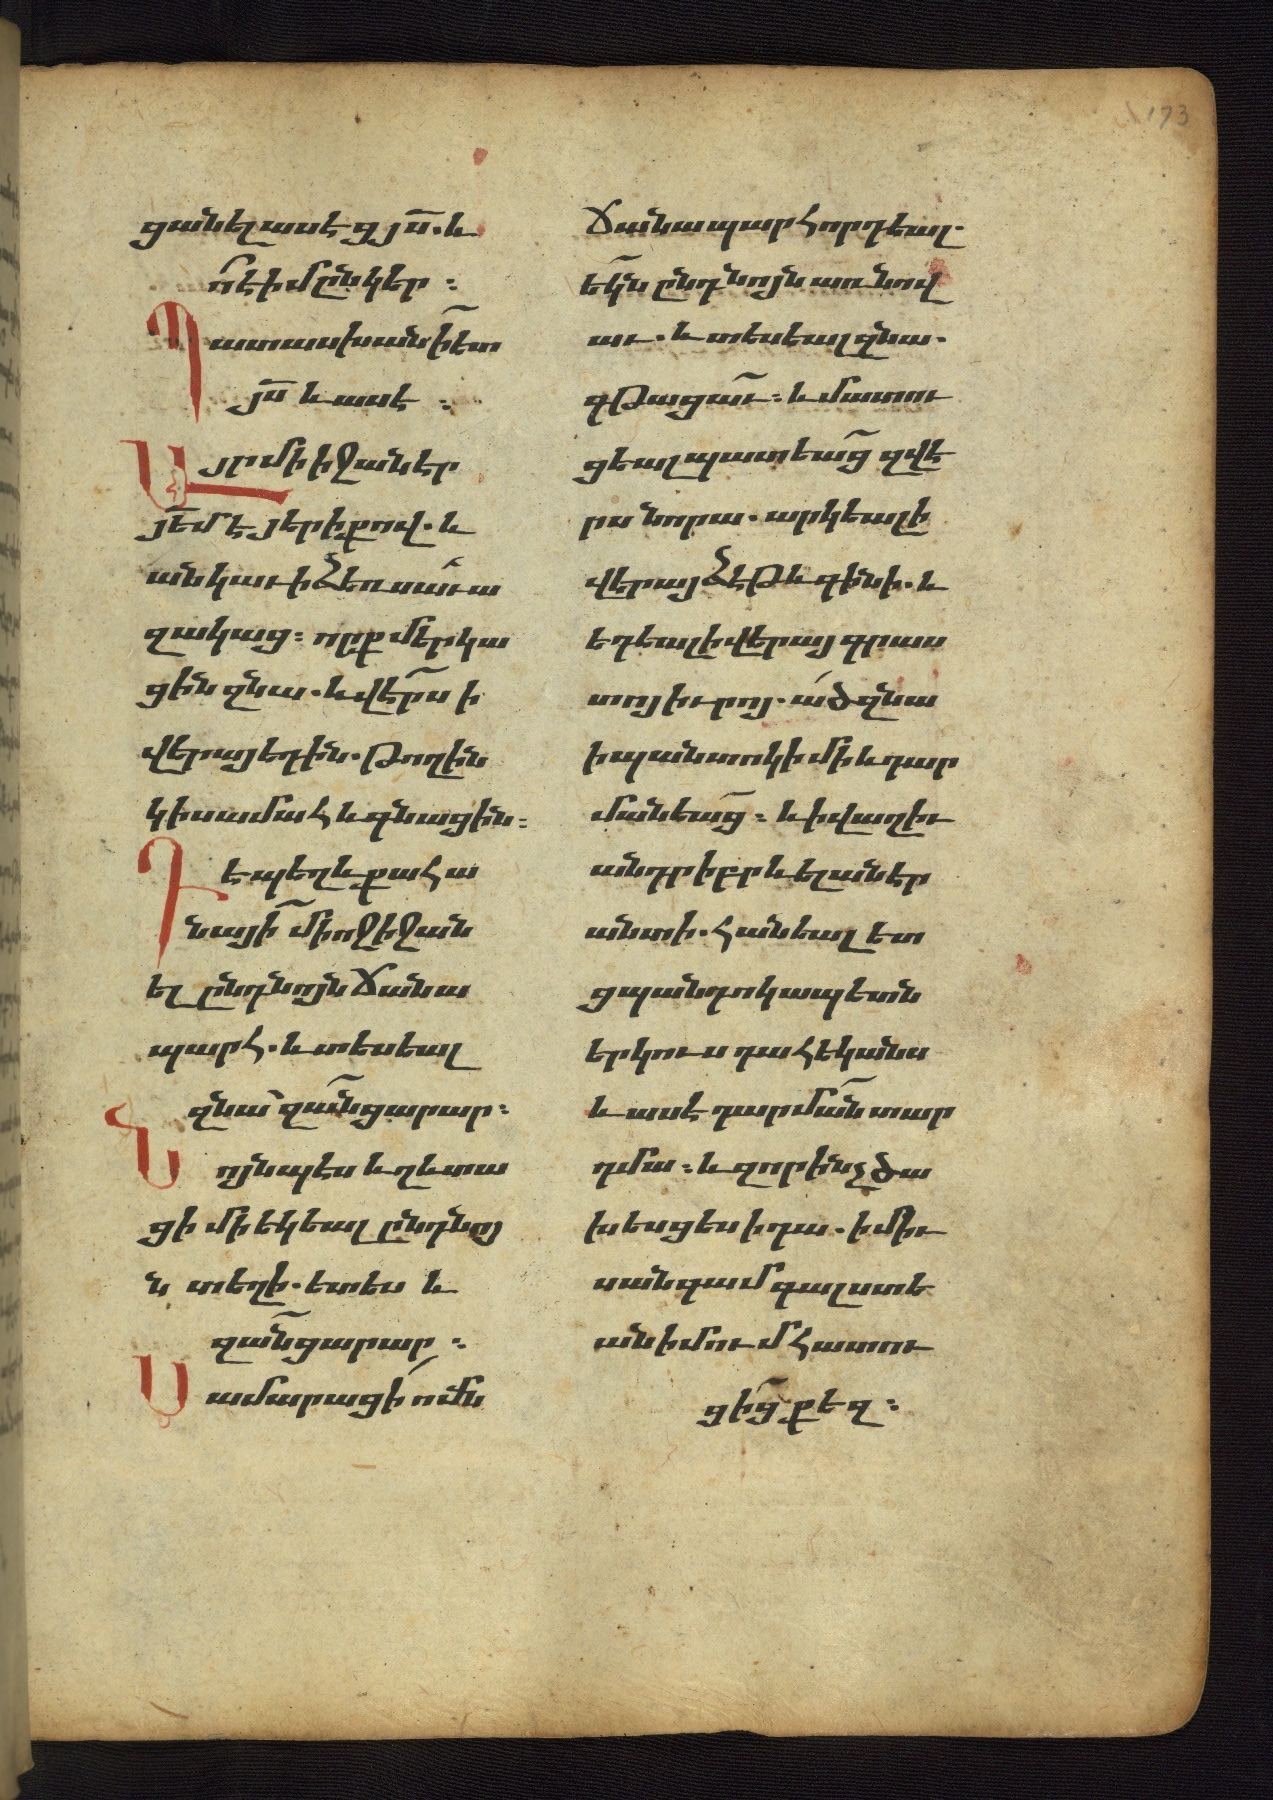 173
ցանել ասէ ցյս̄. և
ո՞ է իմ ընկեր ։
Պատասխանի ետ
յս̄ և ասէ ։
Այր մի իջանէր
յեմ̄ է յերիքով. և
անկաւ ի ձեռս աւա
զակաց ։ որք մերկա
ցին զնա. և վէրս ի
վերայ եդին. թողին
կիսամահ և գնացին ։
Դէպ եղև քահա
նայի միոջ իջան
ել ընդ նոյն ճանա
պարհ. և տեսեալ
զնա՝ զանց արար ։
Նոյնպէս և ղևտա
ցի մի եկեալ ընդ նոյ
ն տեղի. ետես և
զանց արար ։
Սամարացի ոմն
ճանապարհորդեալ.
եկն ընդ նոյն առ նով
աւ. և տեսեալ զնա.
գթացաւ ։ և մատու
ցեալ պատեաց զվէ
րս նորա. արկեալ ի
վերայ ձէթ և գինի. և
եդեալ ի վերայ գրաս
տոյ իւրոյ. ած զնա
ի պանտոկի մի և դար
մանեաց ։ և ի վաղիւ
անդր իբրև ելանէր
անտի. հանեալ ետ
ցպանդոկապետն
երկուս դահեկանս
և ասէ դարման տար
դմա ։ և զոր ինչ ծա
խեսցես ի դա. ի միւ
սանգամ գալստե
ան իմում հատու
ցից քեզ ։